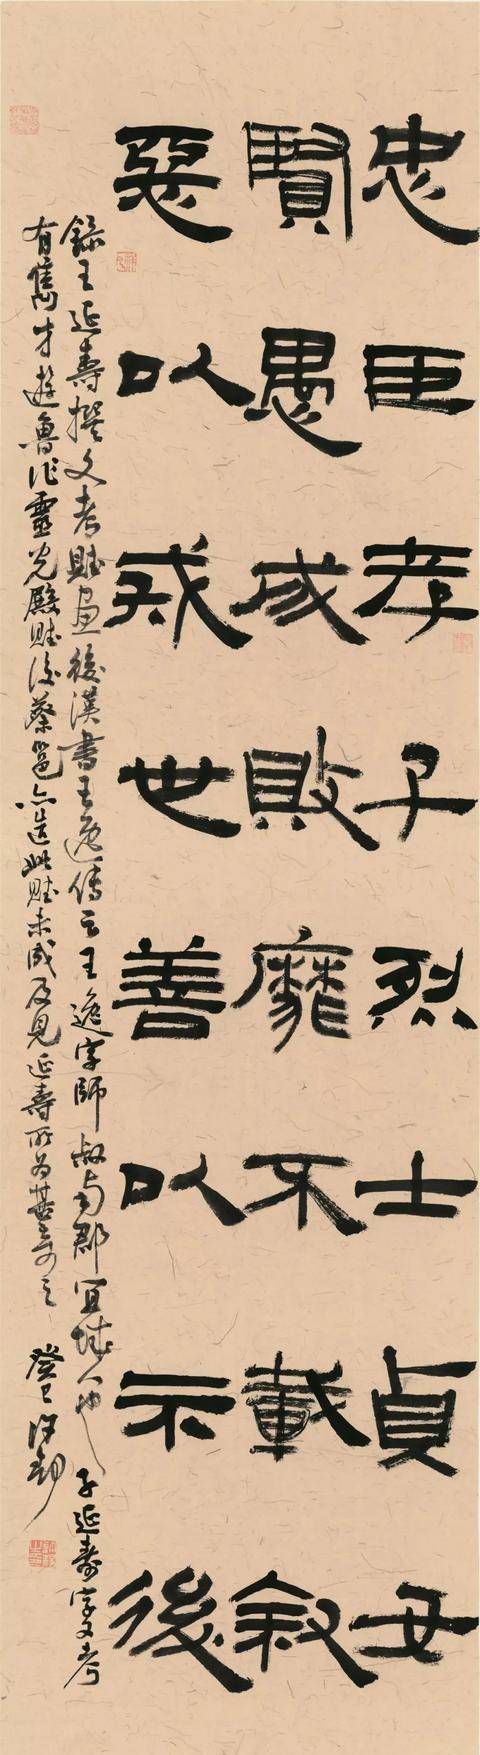 忠臣孝子烈士貞女
賢愚成敗靡不載叙
惡以戒世善以示後
錄王延壽撰文考賦畫後漢書王逸傳云王逸字師叔南郡宜城人也子延壽字文考
有雋才遊魯作靈光殿賦後蔡邕亦造此賦未成及見延壽所為甚奇之 癸巳